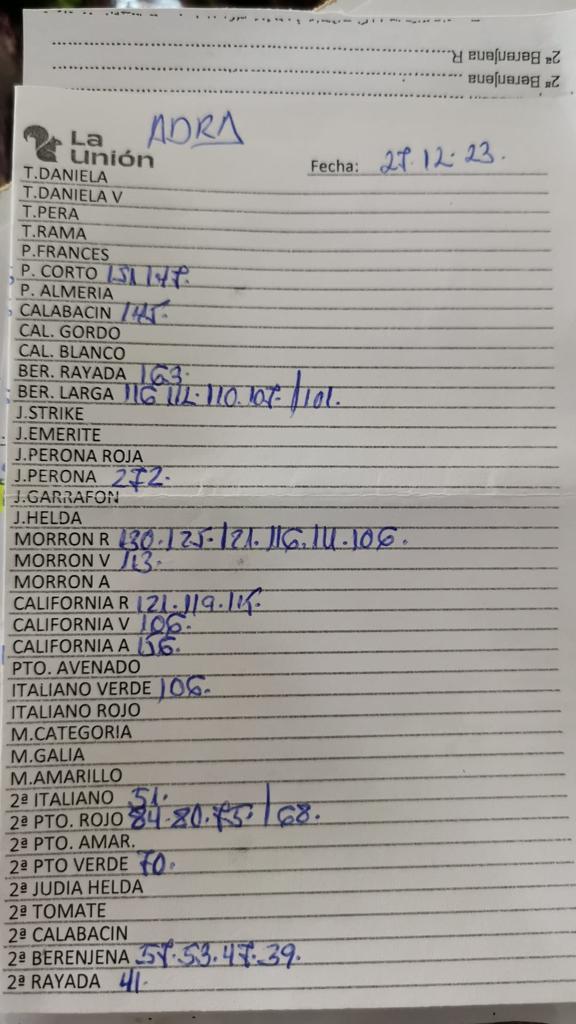 2ª Berenjena R
2ª Berenjena
ADRA
La
Unión
Fecha: 27.12.23.
T.DANIELA
T.DANELA V
T.PERA
T.RAMA
P.FRANCES
P. CORTO 151 147.
P. ALMERIA
CALABACIN 145.
CAL. GORDO
CAL. BLANCO
BER. RAYADA 163.
BER. LARGA 116 112. 110. 107. / 101.
J.STRIKE
J.EMERITE
J.PERONA ROJA
J.PERONA 272.
J.GARRAFON
J.HELDA
MORRON R 130. 125. 121. 116. 111. 106.
MORRON V 113.
MORRON A
CALIFORNIA R 121. 119. 115.
CALIFORNIA V 106.
CALIFORNIA A 156.
PTO. AVENADO
ITALIANO VERDE 106.
ITALIANO ROJO
M.CATEGORIA
M.GALIA
M.AMARILLO
2ª ITALIANO 51.
2ª PTO. ROJO 84. 80. 75. / 68.
2ª PTO. AMAR.
2ª PTO VERDE 70.
2ª JUDIA HELDA
2ª TOMATE
2ª CALABACIN
2ª BERENJENA 57. 53. 47. 39.
2ª RAYADA 41.